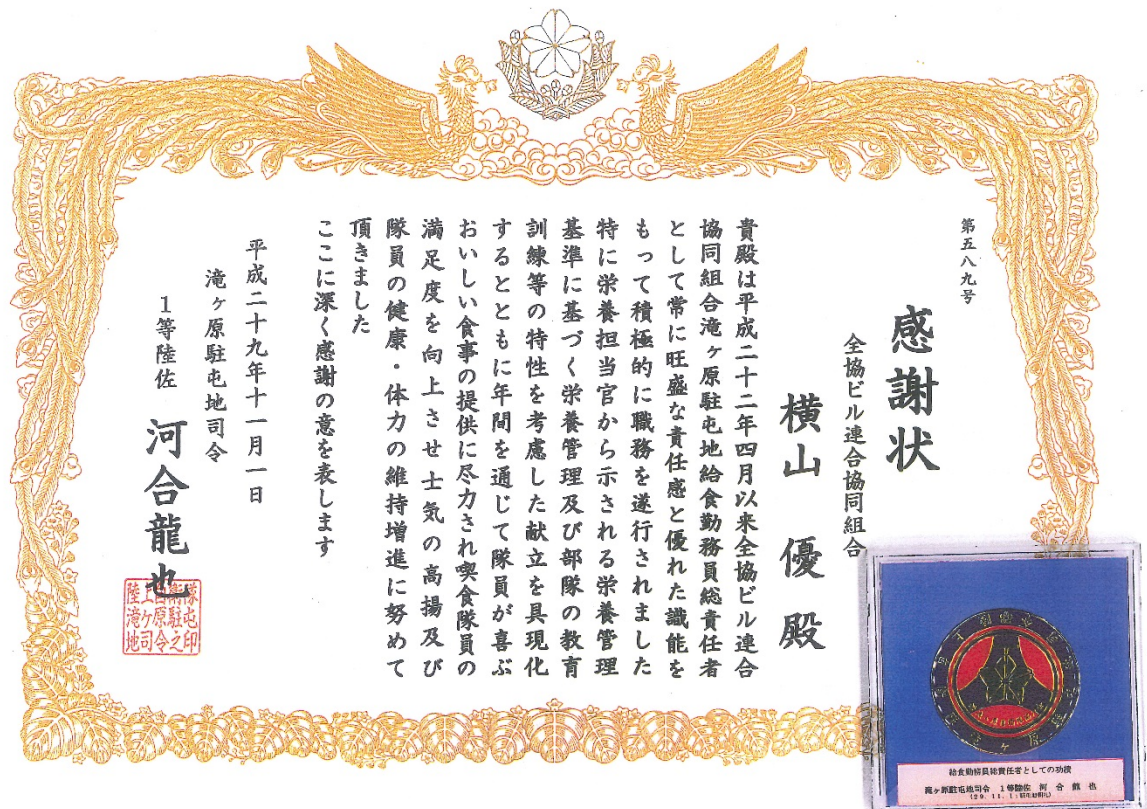 第五八九号
感謝状
全協ビル連合協同組合
横山 優 殿
貴殿は平成二十二年四月以来全協ビル連合
協同組合滝ヶ原駐屯地給食勤務員総責任者
として常に旺盛な責任感と優れた識能を
もって積極的に職務を遂行されました
特に栄養担当官から示される栄養管理
基準に基づく栄養管理及び部隊の教育
訓練等の特性を考慮した献立を具現化
するとともに年間を通じて隊員が喜ぶ
おいしい食事の提供に尽力され喫食隊員の
満足度を向上させ士気の高揚及び
隊員の健康・体力の維持増進に努めて
頂きました
ここに深く感謝の意を表します
平成二十九年十一月一日
滝ヶ原駐屯地司令
1等陸佐 河合龍也
給食勤務員総責任者としての功績
滝ヶ原駐屯地司令 1等陸佐 河合龍也